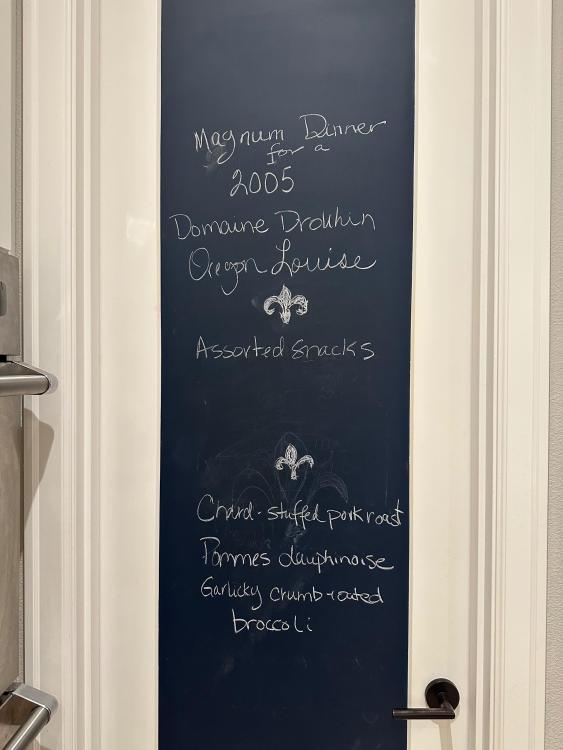 Magnum Dinner
for a
2005
Domaine Drouhin
Oregon Louise
Assorted snacks
Chard-stuffed pork roast
Pommes dauphinoise
Garlicky crumb-coated
broccoli